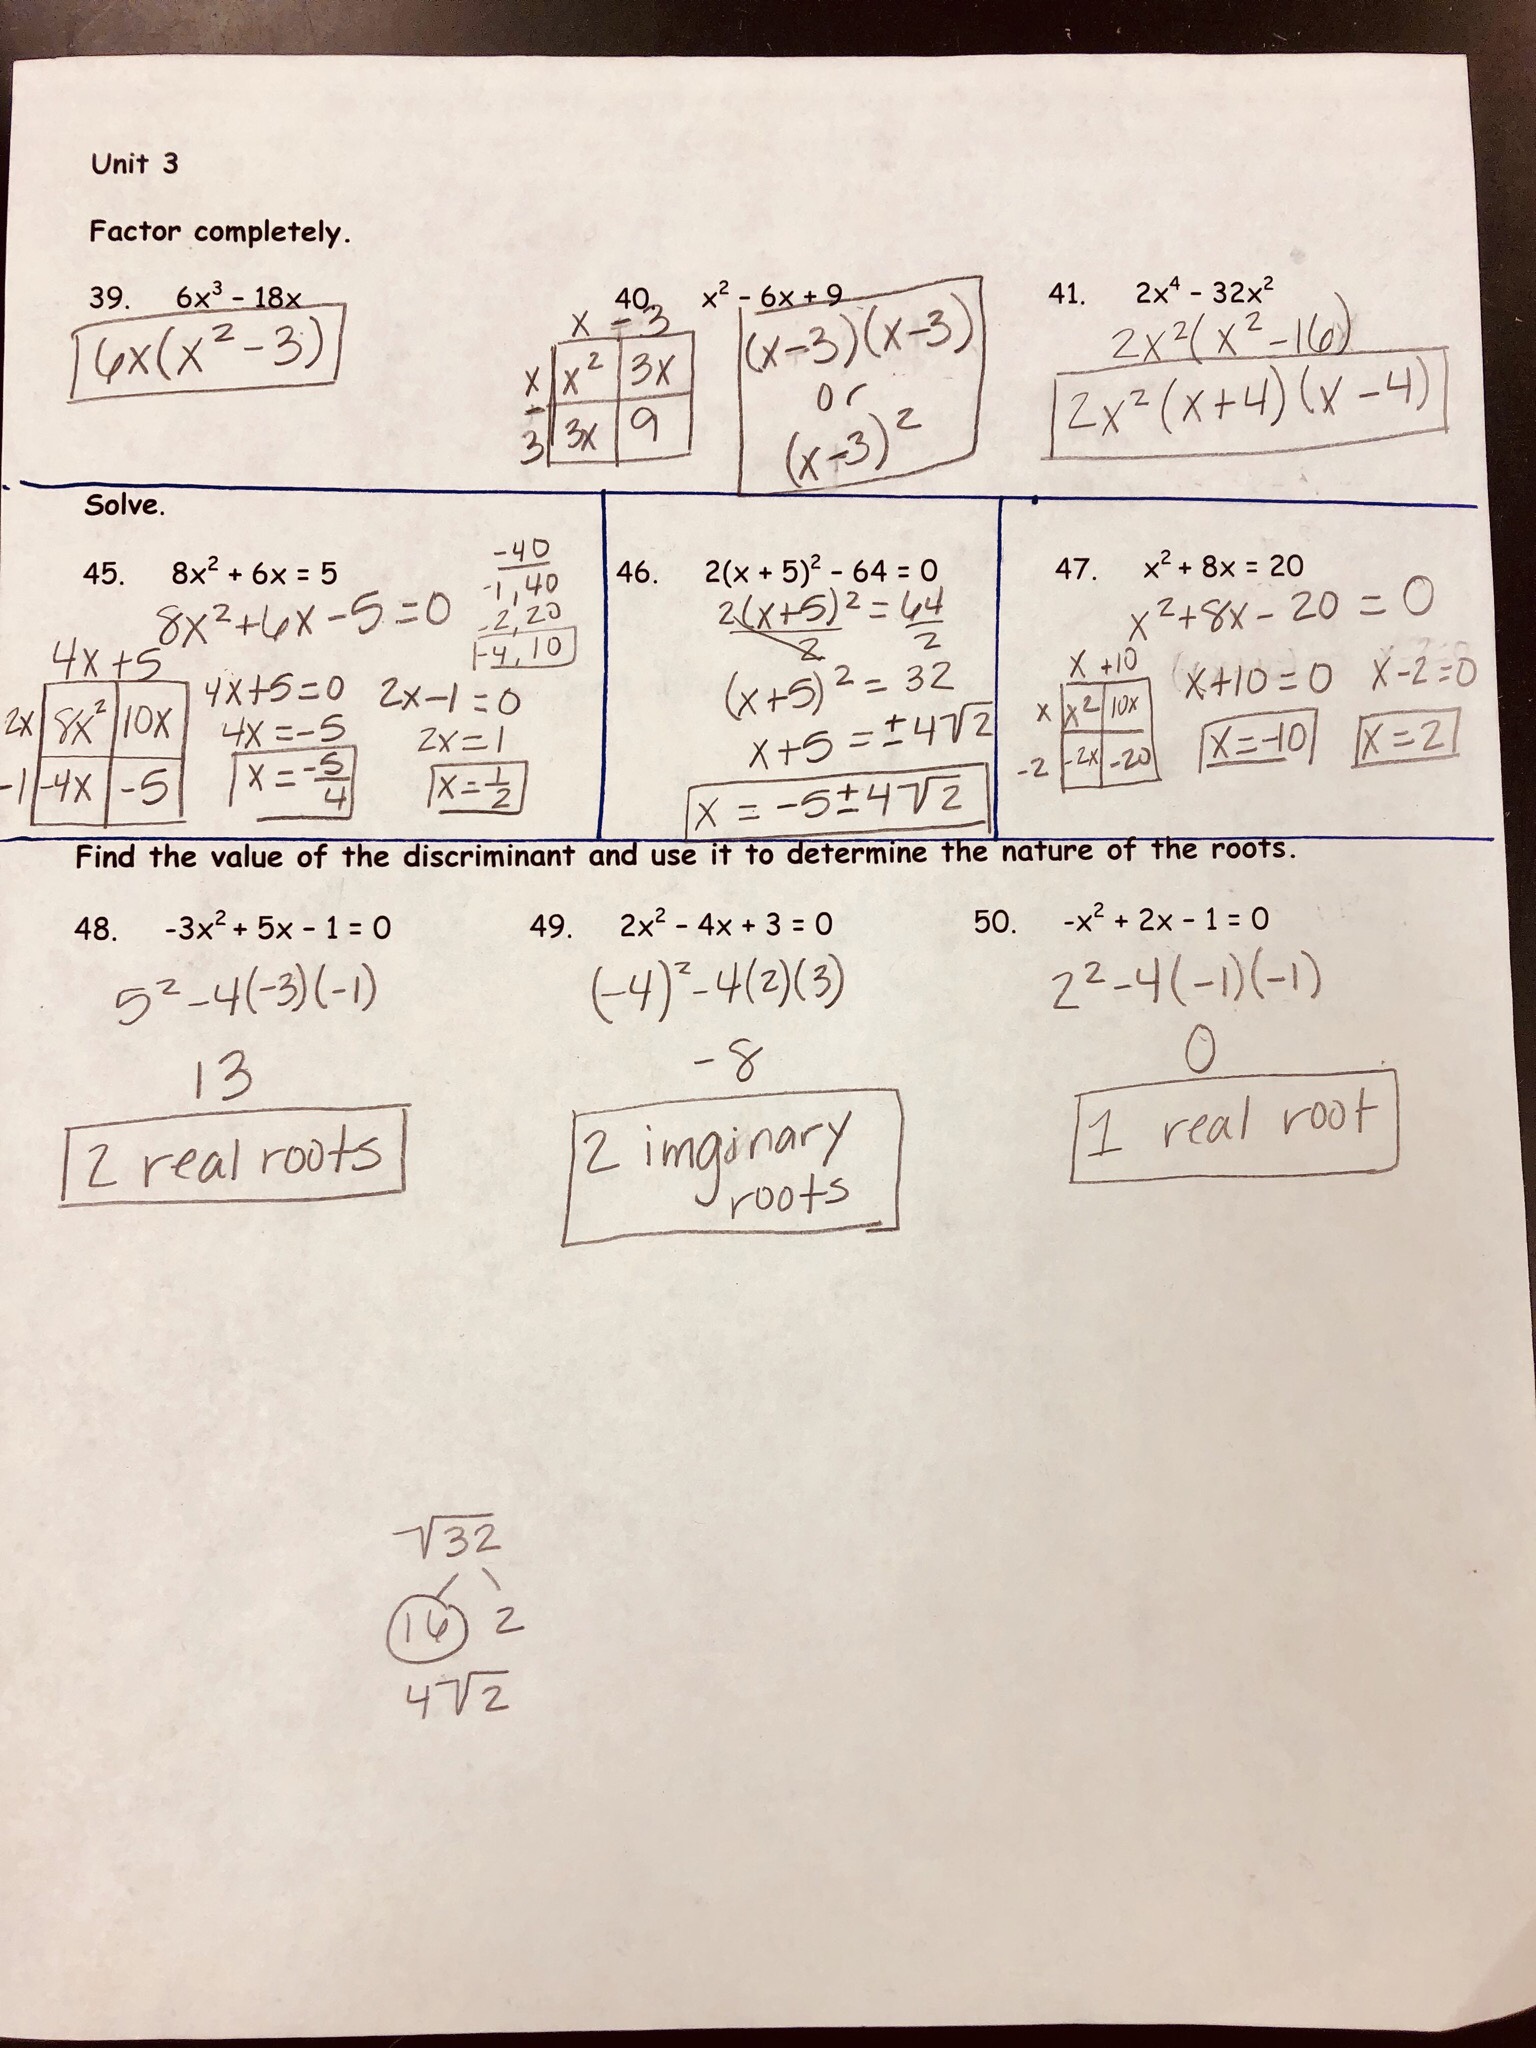 Unit 3
Factor completely.
39. 6x³ - 18x
6x(x² - 3)
40. x² - 6x + 9
x - 3
x x² 3x
- 3 3x 9
(x-3)(x-3)
or
(x-3)²
41. 2x⁴ - 32x²
2x²(x² - 16)
2x²(x+4)(x-4)
Solve.
45. 8x² + 6x = 5
8x² + 6x - 5 = 0
-40
-1, 40
-2, 20
-4, 10
4x + 5
2x 8x² 10x
-1 -4x -5
4x+5=0
4x=-5
x = -5/4
2x-1=0
2x=1
x=1/2
46. 2(x + 5)² - 64 = 0
2(x+5)²/2 = 64/2
(x+5)² = 32
x+5 = ±4√2
x = -5±4√2
47. x² + 8x = 20
x²+8x-20 = 0
x +10
x x² 10x
-2 -2x -20
x+10=0
x=-10
x-2=0
x=2
Find the value of the discriminant and use it to determine the nature of the roots.
48. -3x² + 5x - 1 = 0
5² - 4(-3)(-1)
13
2 real roots
49. 2x² - 4x + 3 = 0
(-4)² - 4(2)(3)
-8
2 imginary
roots
50. -x² + 2x - 1 = 0
2² - 4(-1)(-1)
0
1 real root
√32
16 2
4√2